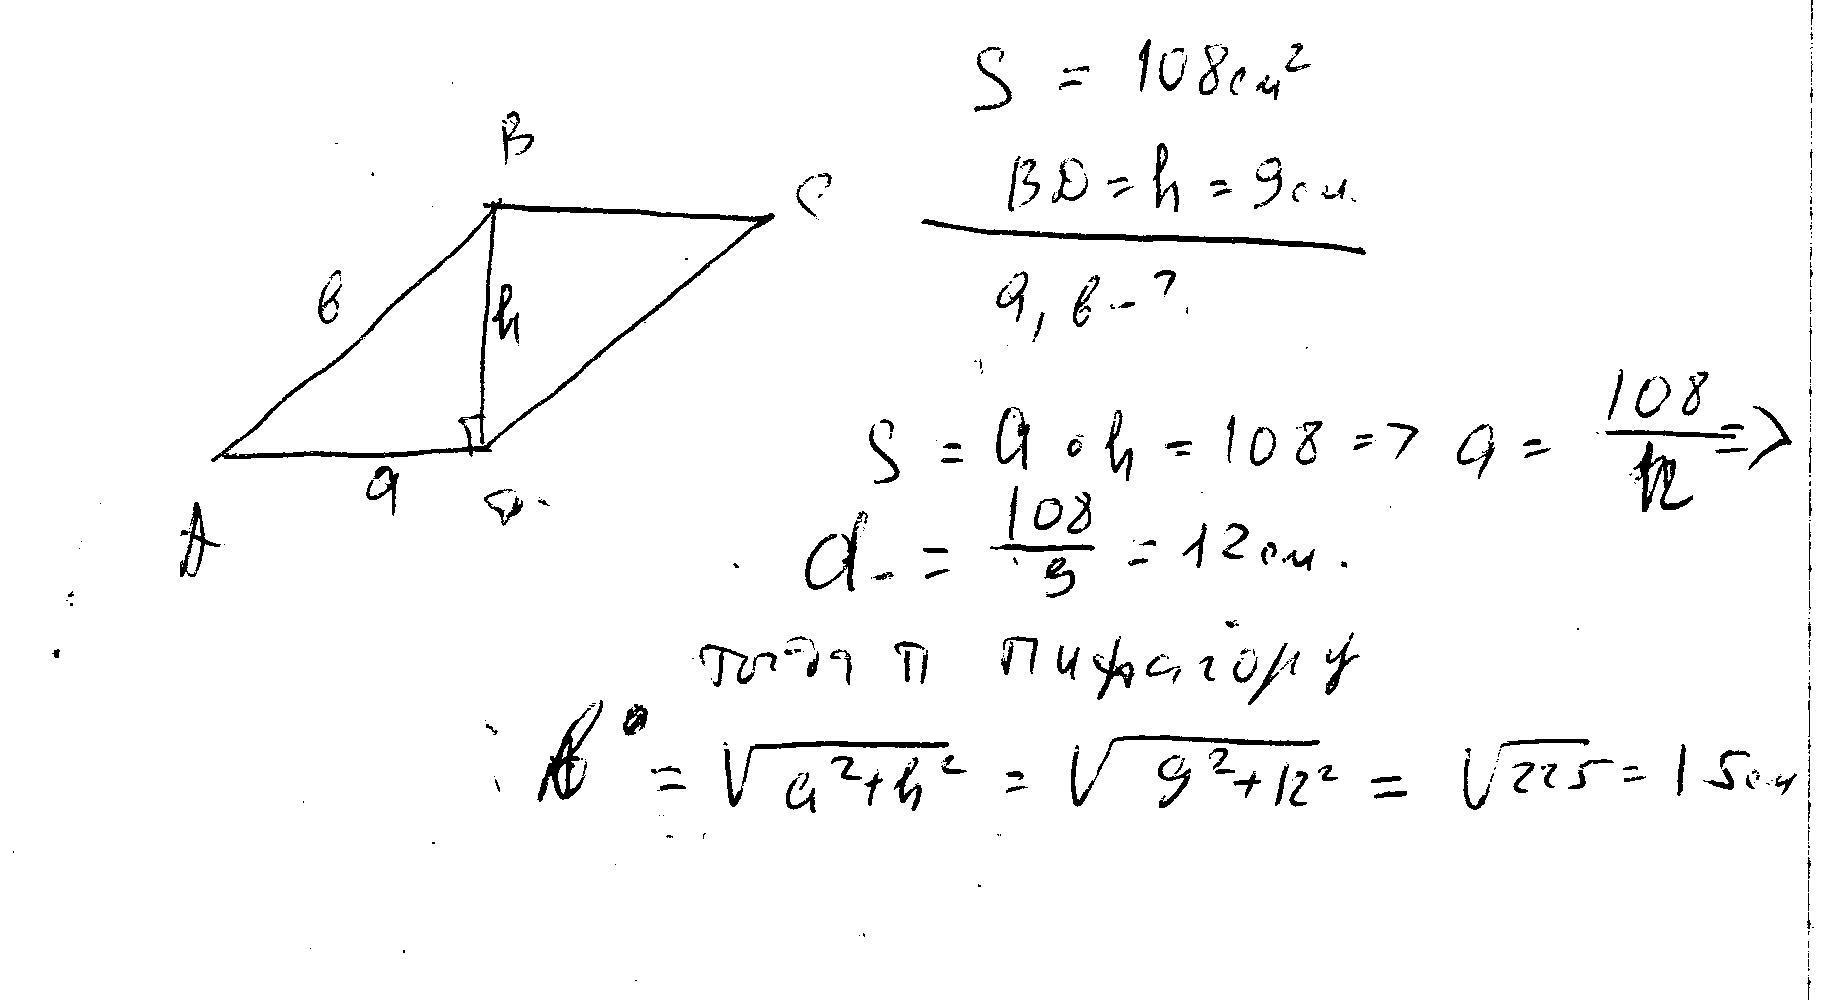 B
C
в
h
a
A
D
S = 108 см²
BD = h = 9 см.
a, в - ?
S = a · h = 108 => a = 108/h =>
a = 108/9 = 12 см.
тогда п пифагору
в = √(a² + h²) = √(9² + 12²) = √225 = 15 см